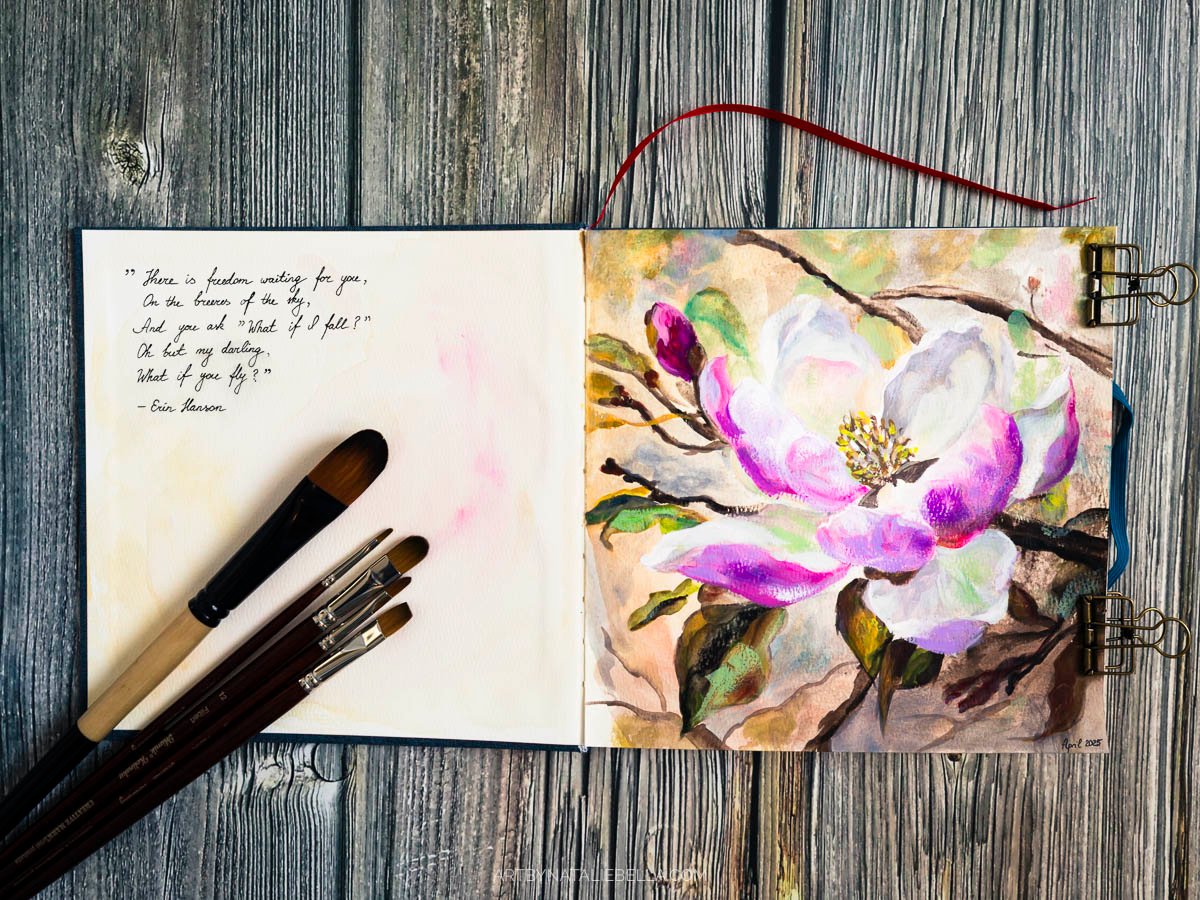 ” There is freedom waiting for you,
On the breezes of the sky,
And you ask ”What if I fall?”
Oh but my darling,
What if you fly?”
– Erin Hanson
April 2025
ARTBYNATALIEBELLA.COM